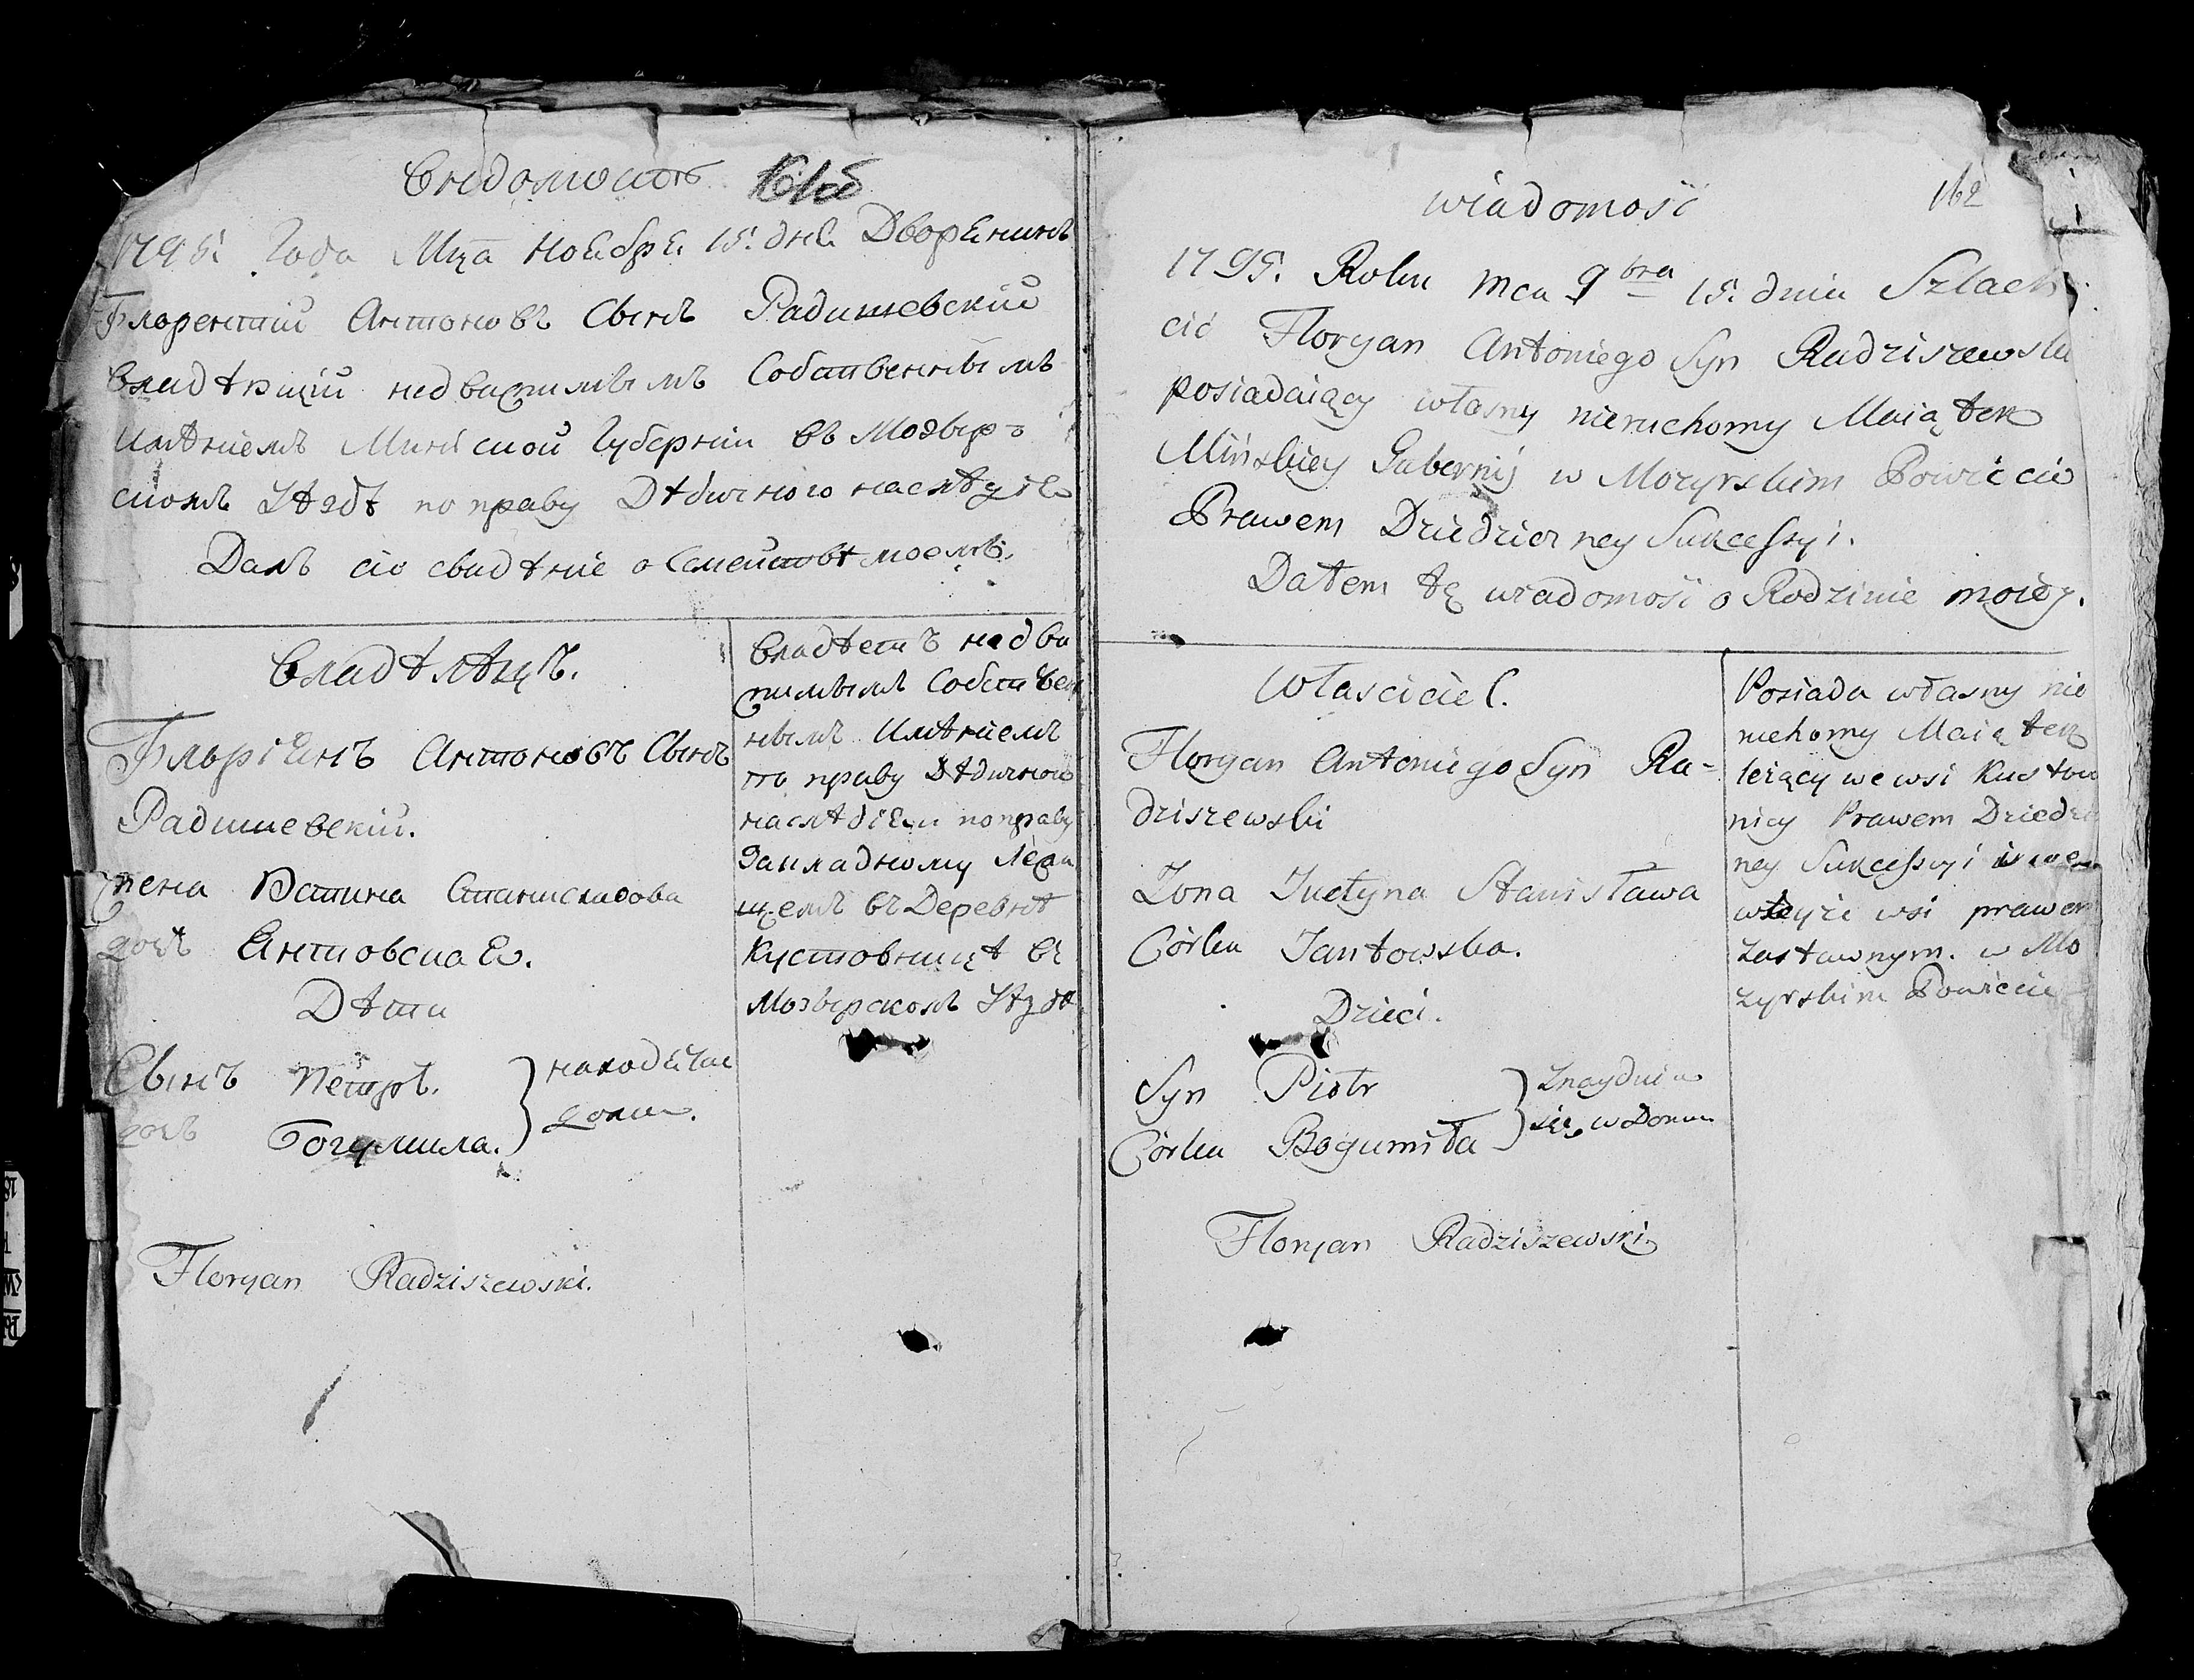 Вѣдомость
1795. Года Мца Ноебре 15. дне Дворенинъ
Флорентий Антоновъ Сынъ Радишевский
владѣющий недвижимымъ Собственнымъ
имѣниемъ Минской Губернии въ Мозыр-
скомъ Уѣздѣ по праву Дѣдичного наслѣдие
Далъ сию свидѣние о Семействѣ моемъ.
Владѣлецъ.
Флориенъ Антоновъ Сынъ
Радишевский.
жена Юстина Станиславова
дочь Ентовская.
Дѣти
Сынъ Петръ.
дочь Богумила.
находетце
доми.
Владѣетъ недви
жимымъ Собствен
нымъ имѣниемъ
по праву Дѣдичного
наслѣдия и по праву
Закладному
въ Деревнѣ
Кустовницѣ въ
Мозырскомъ Уѣздѣ
Floryan Radziszewski.
162
wiadomość
1795. Roku mca 9bra 15. dnia Szlach
cić Floryan Antoniego Syn Radziszewski
posiadaiący własny nieruchomy Maiątek
Mińskiey Gubernij w Mozyrskim Powiecie
Prawem Dziedziczney Sukcessyi.
Dałem tę wiadomość o Rodzinie moiey.
Właściciel.
Floryan Antoniego Syn Ra-
dziszewski
Zona Justyna Stanisława
Córka Jantowska.
Dzieci.
Syn Piotr
Córka Bogumiła
Znayduią
się w Domu
Posiada własny nie
ruchomy Maiątek
leżący we wsi Kustow
nicy Prawem Dziedzi
ney Sukcessyi
wteyże wsi prawem
zastawnym. w Mo
zyrskim Powiecie
Floryan Radziszewski